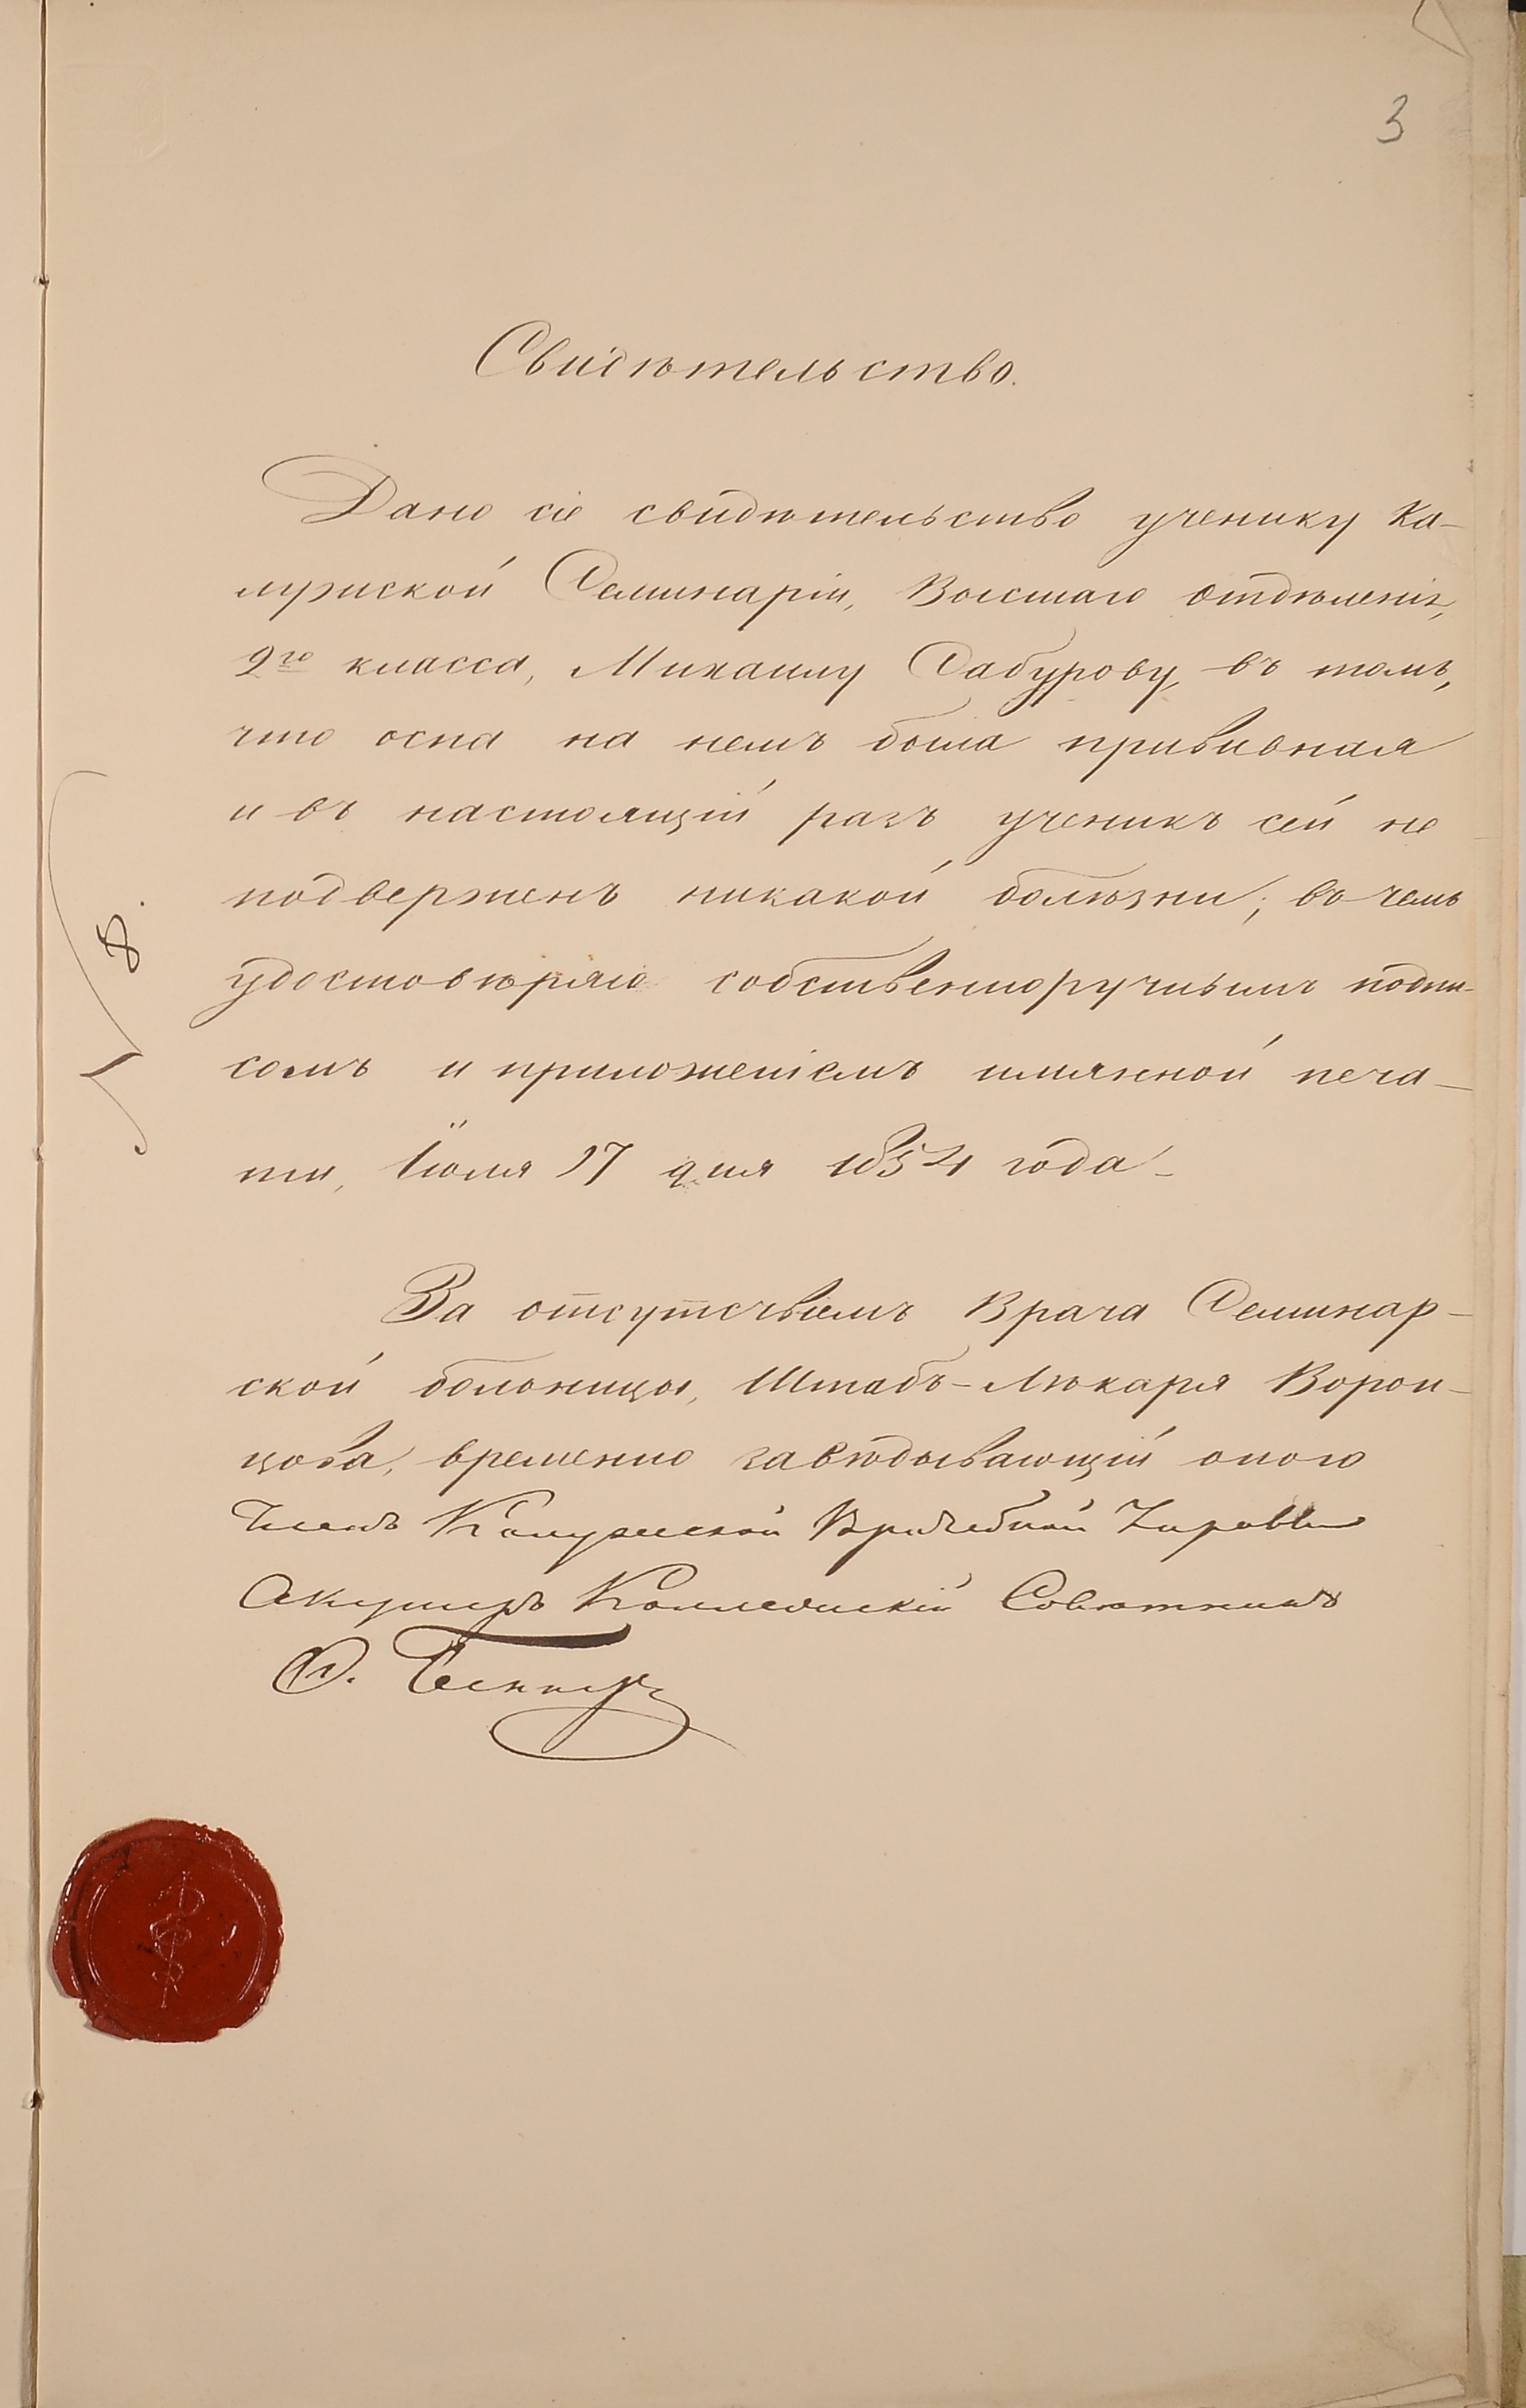 3
Свидѣтельство.
Дано сіе свидѣтельство ученику Ка-
лужской Семинаріи, Высшаго отдѣленія,
2го класса, Михаилу Сабурову, въ томъ,
что оспа на немъ была прививная
и въ настоящій разъ ученикъ сей не
подверженъ никакой болѣзни; въ чемъ
удостовѣряю собственноручнымъ подпи-
сомъ и приложеніемъ имянной печа-
ти, Іюля 17 дня 1854 года
8.
За отсутствіемъ Врача Семинар-
ской больницы, Штабъ-Лѣкаря Ворон-
цова, временно завѣдывающій оною
Членъ Калужской Врачебной Управы
Акушеръ Коллежскій Совѣтникъ